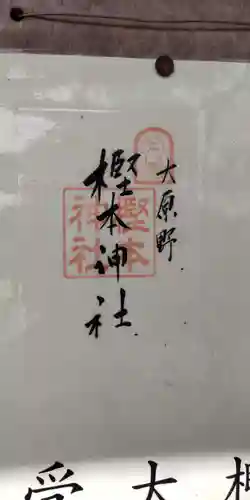 大原野
樫本神社
樫本
神社